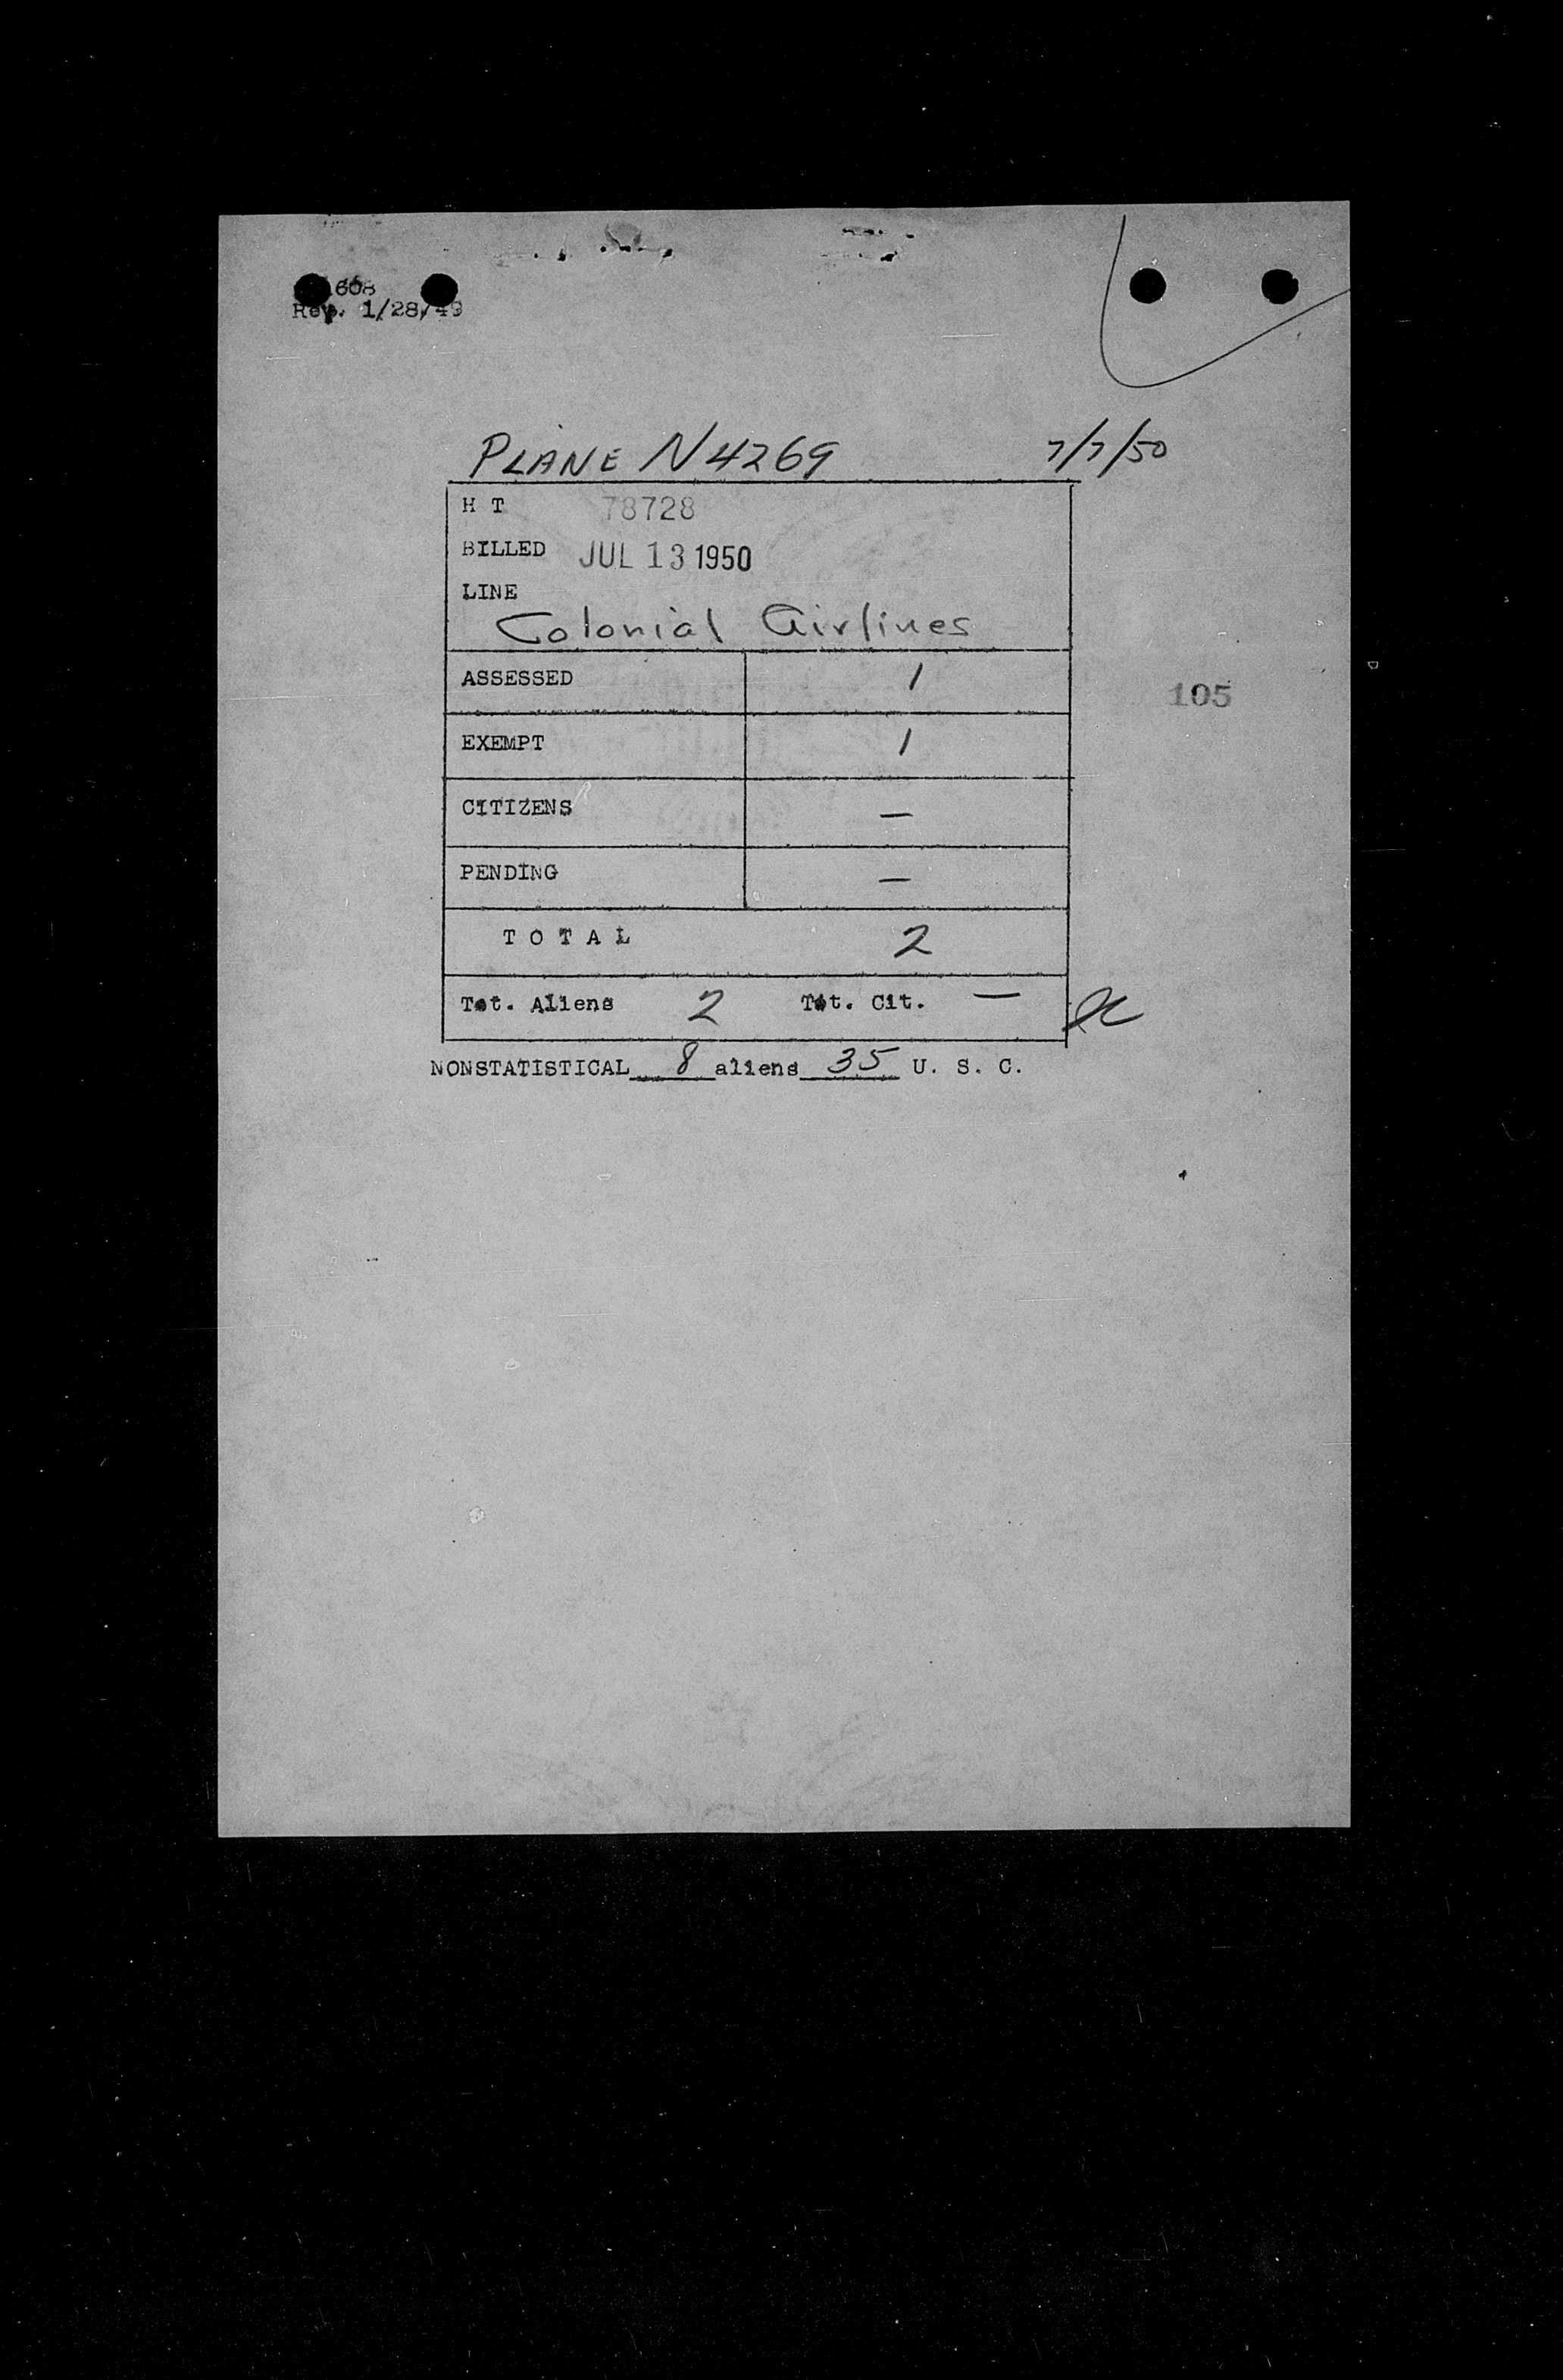 608
Rev. 1/28/49
PLANE N4269 7/7/50
H T 78728
BILLED JUL 13 1950
LINE
Colonial Airlines
ASSESSED 1
105
EXEMPT 1
CITIZENS —
PENDING —
T O T A L 2
Tot. Aliens 2 Tot. Cit. —
NONSTATISTICAL 8 aliens 35 U. S. C.